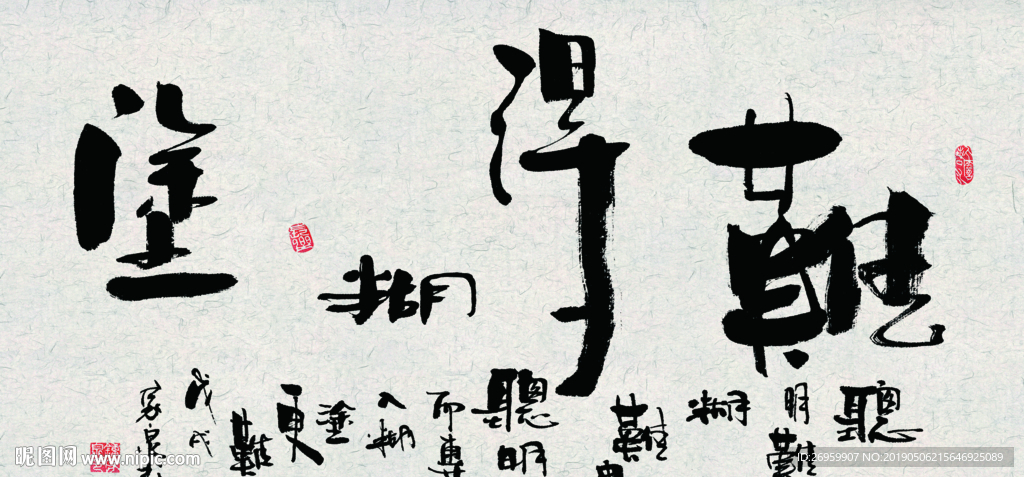 難得糊塗
聰
明難
糊
難由
聰明
而轉
入糊
塗
更
難
戊戌
昵图网
www.nipic.com
ID:26959907 NO:20190506215646925089